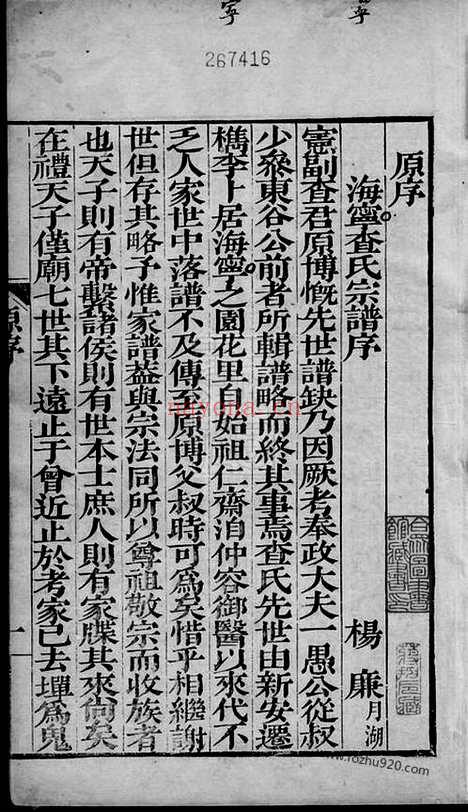 寧
寧
267416
原序
海寧查氏宗譜序
楊廉月湖
憲副查君原博慨先世譜缺乃因厥考奉政大夫一愚公從叔
少參東谷公前者所輯譜略而終其事焉查氏先世由新安遷
檇李卜居海寧之園花里自始祖仁齋洎仲容御醫以來代不
乏人家世中落譜不及傳至原博父叔時可為矣惜乎相繼謝
世但存其略予惟家譜葢與宗法同所以尊祖敬宗而收族者
也天子則有帝繫諸侯則有世本士庶人則有家牒其來尙矣
在禮天子僅廟七世其下遠止于曾近止於考家已去墠為鬼
原序
一
nayona.cn
www.fozhu920.com